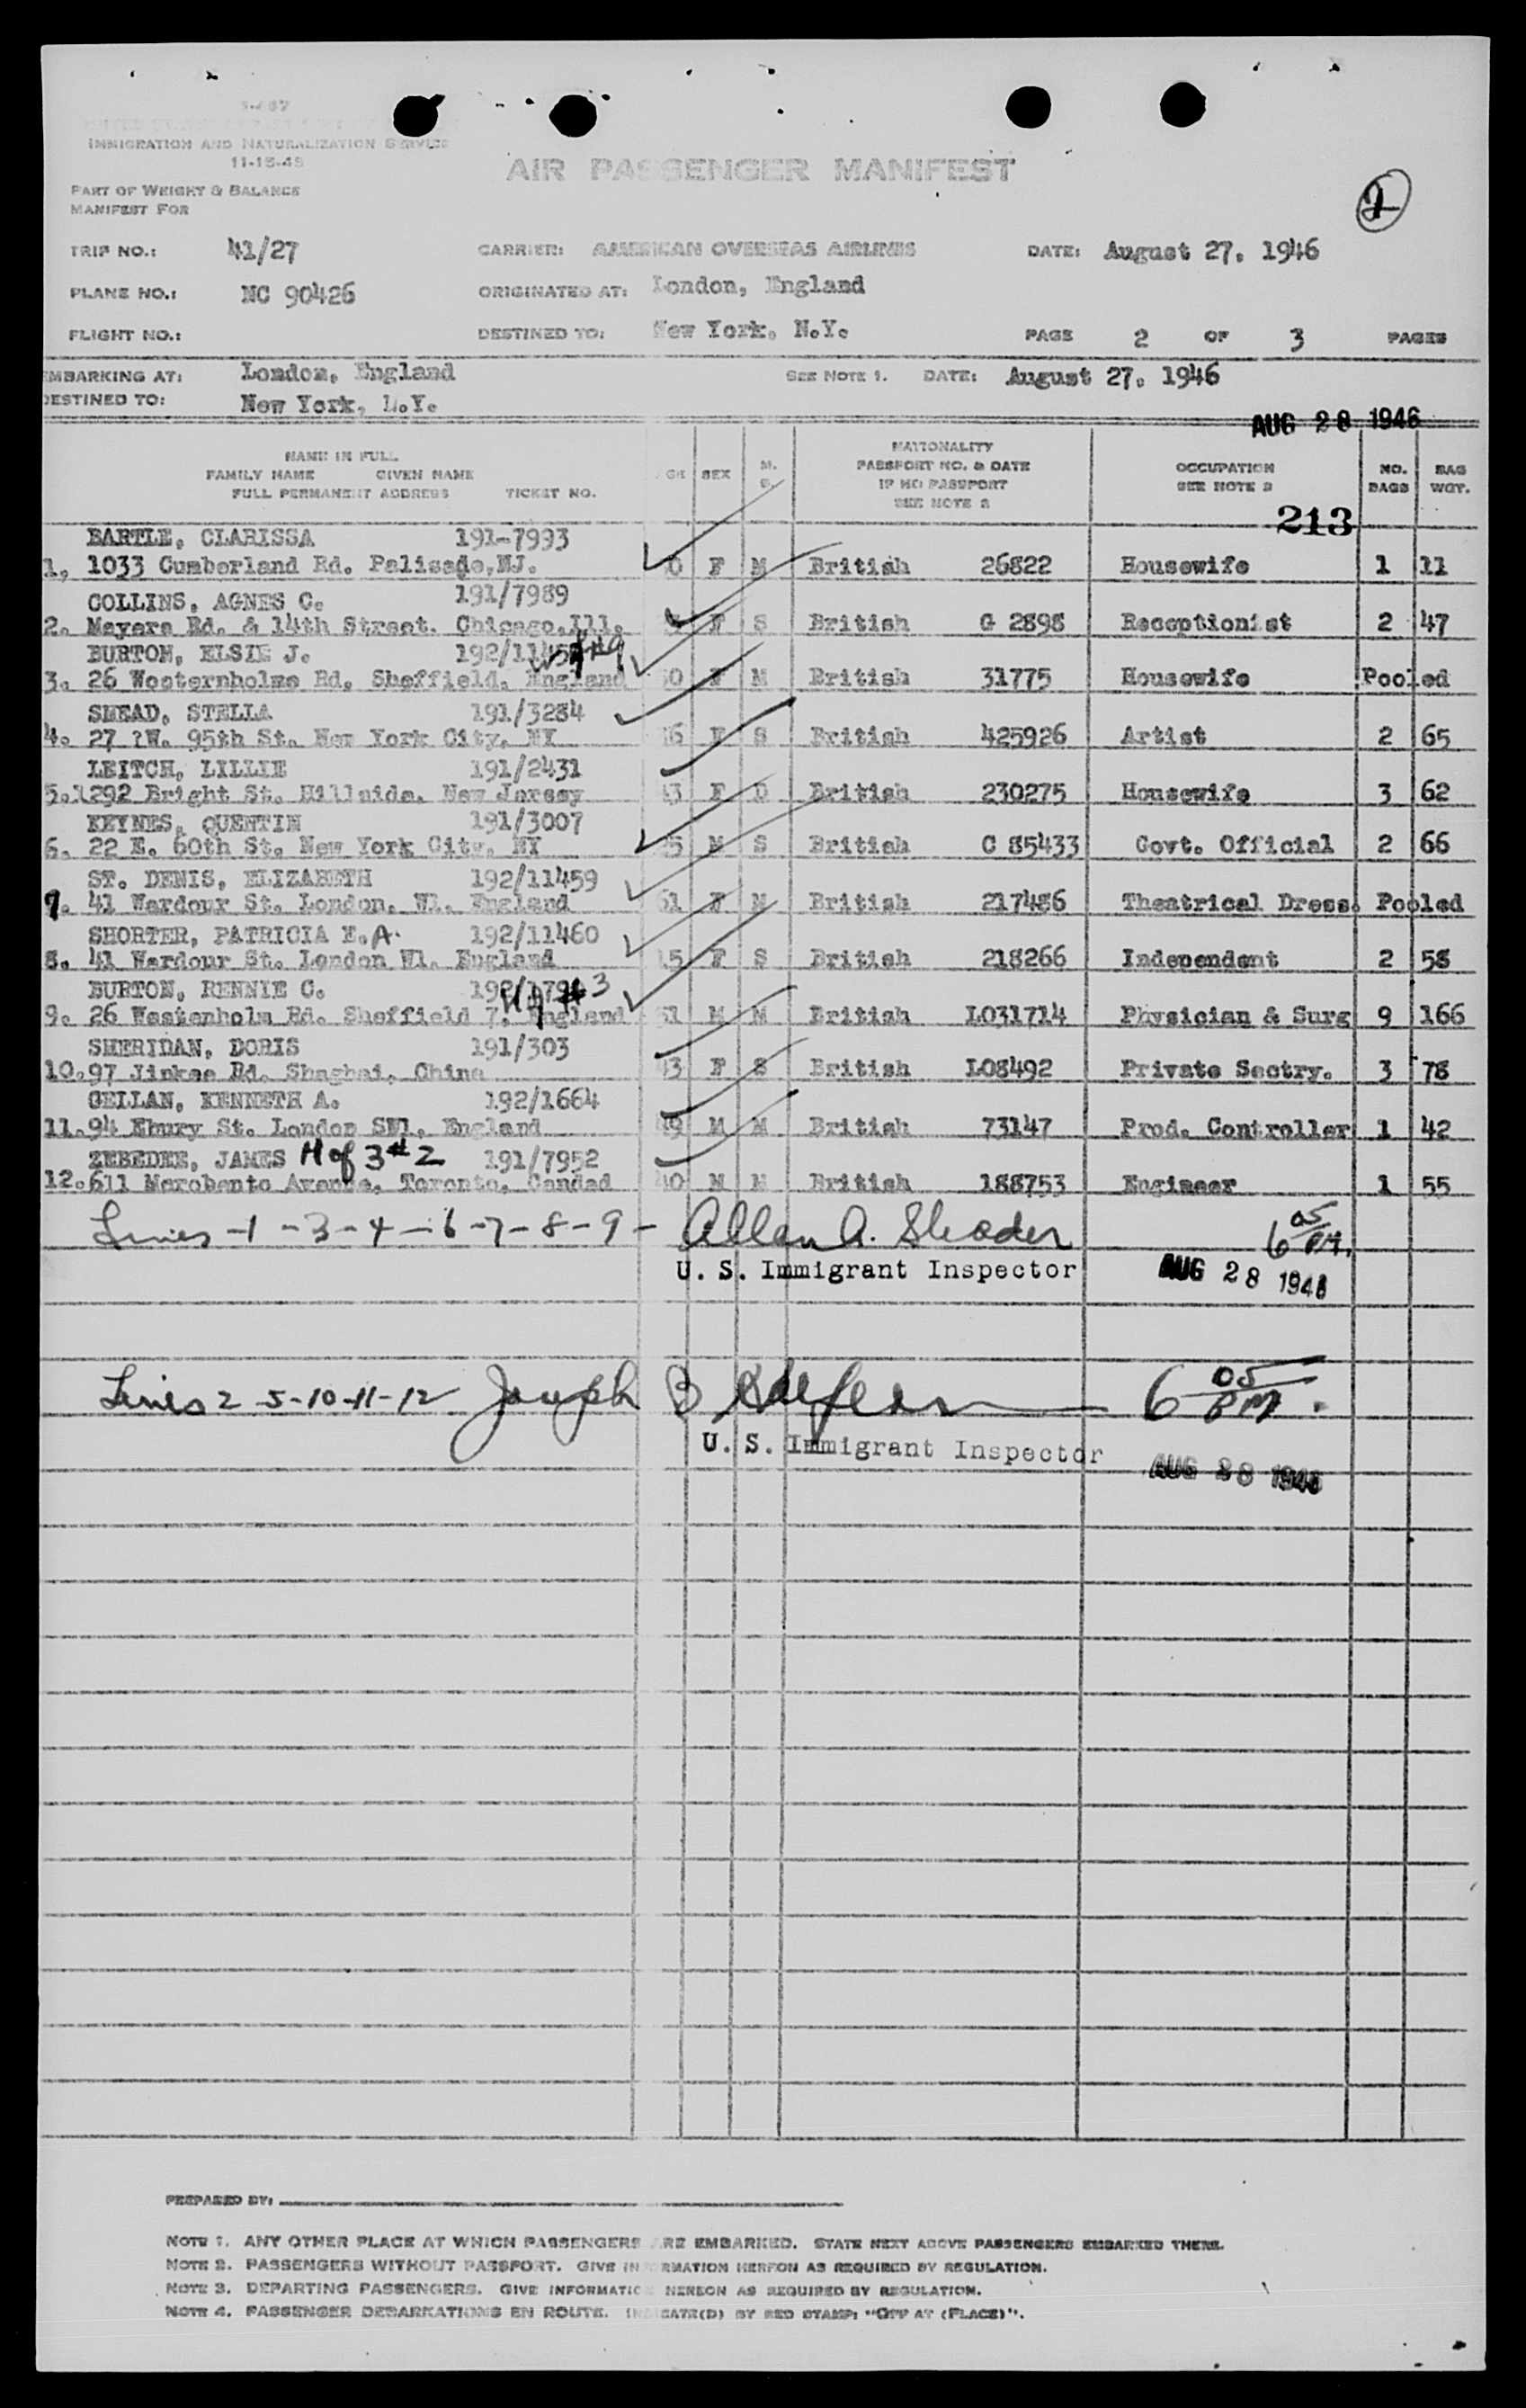 IMMIGRATION AND NATURALIZATION SERVICE
11-15-45
AIR PASSENGER MANIFEST
PART OF WEIGHT & BALANCE
MANIFEST FOR
TRIP NO.: 41/27 CARRIER: AMERICAN OVERSEAS AIRLINES DATE: August 27, 1946
PLANE NO.: NC 90426 ORIGINATED AT: London, England
FLIGHT NO.: DESTINED TO: New York, N.Y. PAGE 2 OF 3 PAGES
EMBARKING AT: London, England SEE NOTE 1. DATE: August 27, 1946
DESTINED TO: New York, N.Y.
AUG 28 1946
NAME IN FULL
FAMILY NAME GIVEN NAME
FULL PERMANENT ADDRESS TICKET NO.
SEX
M.
S.
NATIONALITY
PASSPORT NO. & DATE
IF NO PASSPORT
SEE NOTE 2
OCCUPATION
SEE NOTE 3
NO.
BAGS
BAG
WGT.
213
BARTLE, CLARISSA 191-7993
1, 1033 Cumberland Rd. Palisade,NJ. F M British 26822 Housewife 1 11
COLLINS, AGNES C. 191/7989
2. Meyers Rd. & 14th Street. Chicago,Ill. F S British G 2898 Receptionist 2 47
BURTON, ELSIE J.
3. 26 Westernholme Rd. Sheffield, England F M British 31775 Housewife Pooled
SNEAD, STELLA 191/3284
4. 27 ?W. 95th St. New York City, NY F S British 425926 Artist 2 65
LEITCH, LILLIE 191/2431
5.1292 Bright St. Hillside. New Jersey F D British 230275 Housewife 3 62
KEYNES, QUENTIN 191/3007
6. 22 E. 60th St. New York City, NY M S British C 85433 Govt. Official 2 66
ST. DENIS, ELIZABETH 192/11459
7. 41 Wardour St. London, W1. England 61 F M British 217486 Theatrical Dress. Pooled
SHORTER, PATRICIA E.A. 192/11460
8. 41 Wardour St. London W1. England F S British 218266 Independent 2 58
BURTON, RENNIE C.
9. 26 Westenholm Rd. Sheffield 7, England M M British LO31714 Physician & Surg 9 166
SHERIDAN, DORIS 191/303
10.97 Jinkee Rd. Shaghai, China 43 F S British LO8492 Private Sectry. 3 78
GELLAN, KENNETH A. 192/1664
11.94 Ebury St. London SW1, England M M British 73147 Prod. Controller 1 42
ZEBEDEE, JAMES H of 3#2 191/7952
12.611 Avenue, Toronto, Candad 40 M M British 188753 Engineer 1 55
Lines -1-3-4-6-7-8-9- Allen A. 6 05 PM.
U. S. Immigrant Inspector AUG 28 1946
Lines 2-5-10-11-12 Joseph B 6 05 PM.
U. S. Immigrant Inspector AUG 28 1946
PREPARED BY:
NOTE 1. ANY OTHER PLACE AT WHICH PASSENGERS ARE EMBARKED. STATE NEXT ABOVE PASSENGERS EMBARKED THERE.
NOTE 2. PASSENGERS WITHOUT PASSPORT. GIVE INFORMATION HEREON AS REQUIRED BY REGULATION.
NOTE 3. DEPARTING PASSENGERS. GIVE INFORMATION HEREON AS REQUIRED BY REGULATION.
NOTE 4. PASSENGER DEBARKATIONS EN ROUTE. INDICATE(D) BY RED STAMP: "OFF AT (PLACE)".